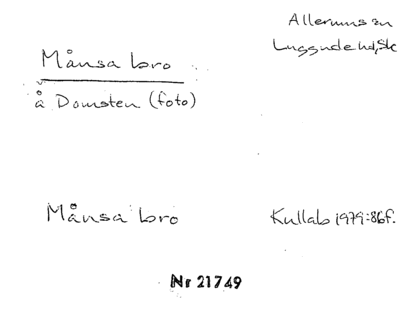 Allerums sn
Luggude hd, Sk
Månsa bro
å Domsten (foto)
Månsa bro
Kullab 1979:86f.
Nr 21749